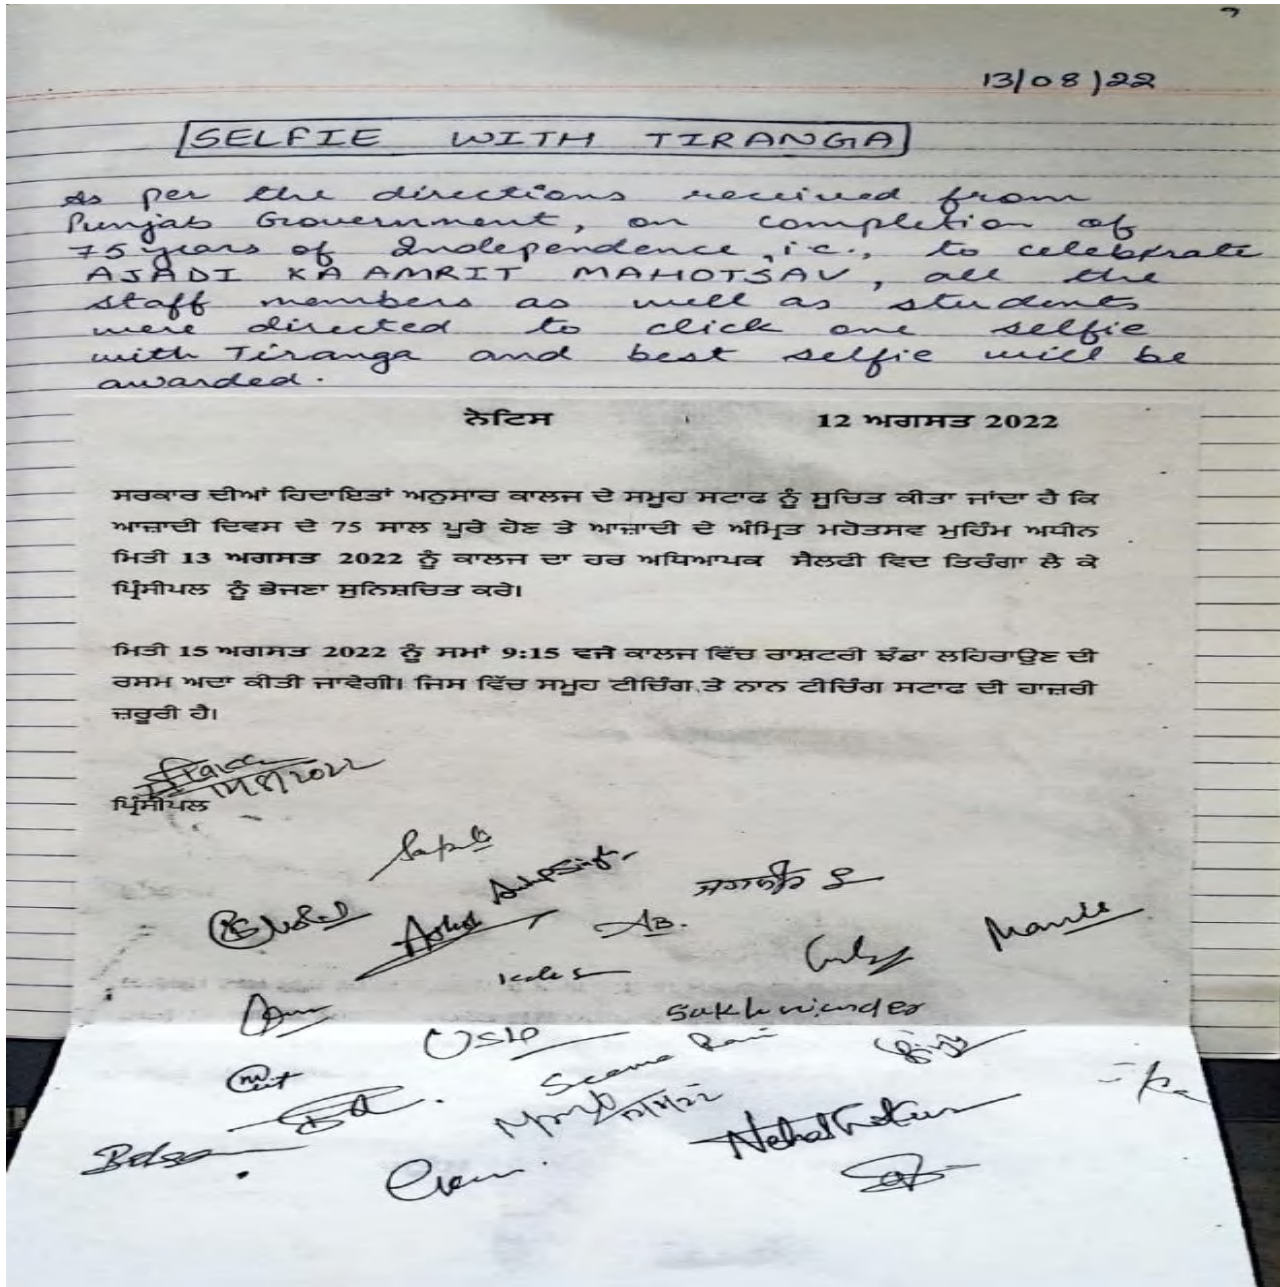 13/08/22
SELFIE WITH TIRANGA
As per the directions received from
Punjab Government, on completion of
75 years of Independence, i.e., to celebrate
AJADI KA AMRIT MAHOTSAV, all the
staff members as well as students
were directed to click one selfie
with Tiranga and best selfie will be
awarded.
ਨੋਟਿਸ 12 ਅਗਸਤ 2022
ਸਰਕਾਰ ਦੀਆਂ ਹਿਦਾਇਤਾਂ ਅਨੁਸਾਰ ਕਾਲਜ ਦੇ ਸਮੂਹ ਸਟਾਫ ਨੂੰ ਸੂਚਿਤ ਕੀਤਾ ਜਾਂਦਾ ਹੈ ਕਿ
ਆਜ਼ਾਦੀ ਦਿਵਸ ਦੇ 75 ਸਾਲ ਪੂਰੇ ਹੋਣ ਤੇ ਆਜ਼ਾਦੀ ਦੇ ਅੰਮ੍ਰਿਤ ਮਹੋਤਸਵ ਮੁਹਿੰਮ ਅਧੀਨ
ਮਿਤੀ 13 ਅਗਸਤ 2022 ਨੂੰ ਕਾਲਜ ਦਾ ਹਰ ਅਧਿਆਪਕ ਸੈਲਫੀ ਵਿਦ ਤਿਰੰਗਾ ਲੈ ਕੇ
ਪ੍ਰਿੰਸੀਪਲ ਨੂੰ ਭੇਜਣਾ ਸੁਨਿਸ਼ਚਿਤ ਕਰੇ।
ਮਿਤੀ 15 ਅਗਸਤ 2022 ਨੂੰ ਸਮਾਂ 9:15 ਵਜੇ ਕਾਲਜ ਵਿੱਚ ਰਾਸ਼ਟਰੀ ਝੰਡਾ ਲਹਿਰਾਉਣ ਦੀ
ਰਸਮ ਅਦਾ ਕੀਤੀ ਜਾਵੇਗੀ। ਜਿਸ ਵਿੱਚ ਸਮੂਹ ਟੀਚਿੰਗ ਤੇ ਨਾਨ ਟੀਚਿੰਗ ਸਟਾਫ ਦੀ ਹਾਜ਼ਰੀ
ਜ਼ਰੂਰੀ ਹੈ।
ਪ੍ਰਿੰਸੀਪਲ
Sukhwinder
Seema Rani